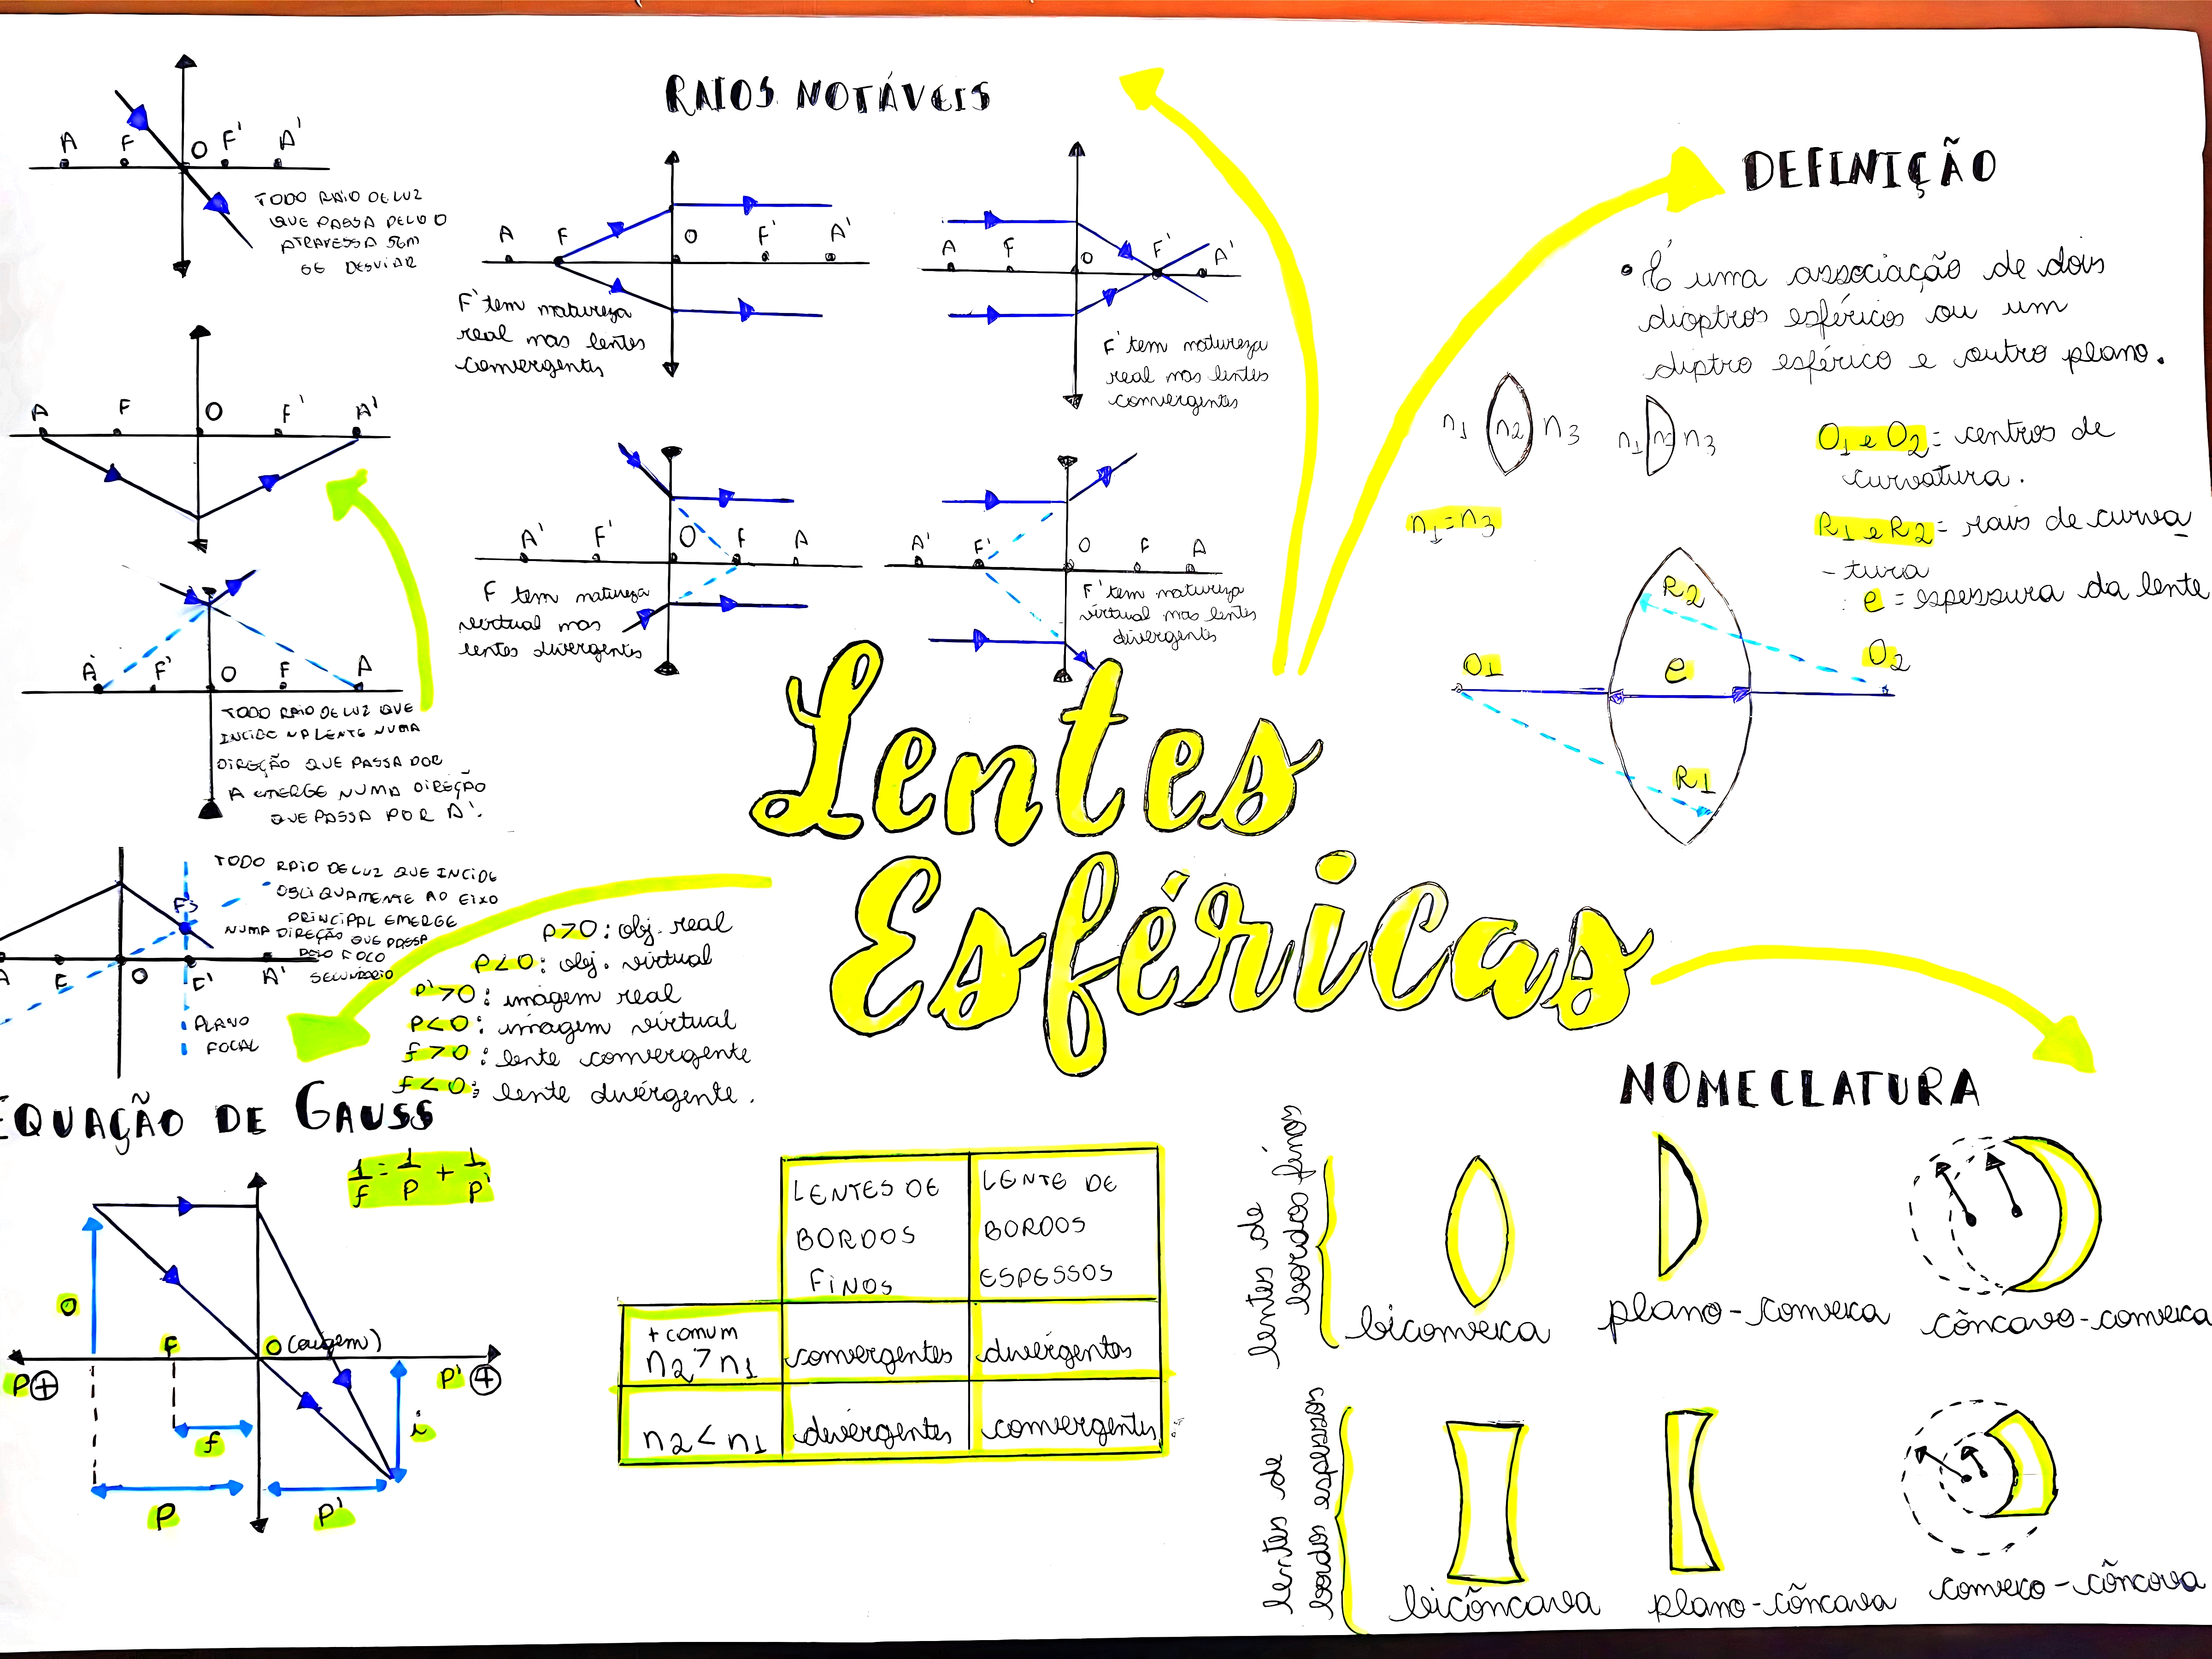 RAIOS NOTÁVEIS
A F O F' A'
TODO RAIO DE LUZ
QUE PASSA PELO O
ATRAVESSA SEM
SE DESVIAR
A F O F' A'
F' tem natureza
real nas lentes
convergentes
A F O F' A'
F' tem natureza
real nas lentes
convergentes
A F O F' A'
A' F' O F A
F tem natureza
virtual nas
lentes divergentes
A' F' O F A
F' tem natureza
virtual nas lentes
divergentes
A' F' O F A
TODO RAIO DE LUZ QUE
INCIDE NA LENTE NUMA
DIREÇÃO QUE PASSA POR
A EMERGE NUMA DIREÇÃO
QUE PASSA POR A'.
TODO RAIO DE LUZ QUE INCIDE
OBLIQUAMENTE AO EIXO
PRINCIPAL EMERGE
NUMA DIREÇÃO QUE PASSA
PELO FOCO
SECUNDÁRIO
A F O F' A'
PLANO
FOCAL
Lentes
Esféricas
DEFINIÇÃO
• É uma associação de dois
dioptros esféricos ou um
diptro esférico e outro plano.
n1 n2 n3
n1 n3
n1 = n3
O1 e O2 = centros de
curvatura.
R1 e R2 = rais de curva
- tura
e = espessura da lente
R2
O1 e O2
R1
p>0: obj. real
p<0: obj. virtual
p'>0: imagem real
p<0: imagem virtual
f>0: lente convergente
f<0: lente divergente.
EQUAÇÃO DE GAUSS
1/f = 1/p + 1/p'
o
F O (origem)
p + p' +
f i
p p'
LENTES DE BORDOS FINOS
LENTE DE BORDOS ESPESSOS
+ comum
n2 > n1 convergentes divergentes
n2 < n1 divergentes convergentes
NOMECLATURA
lentes de
bordos finos
biconvexa plano-convexa côncavo-convexa
lentes de
bordos espessos
bicôncava plano-côncava convexo-côncova